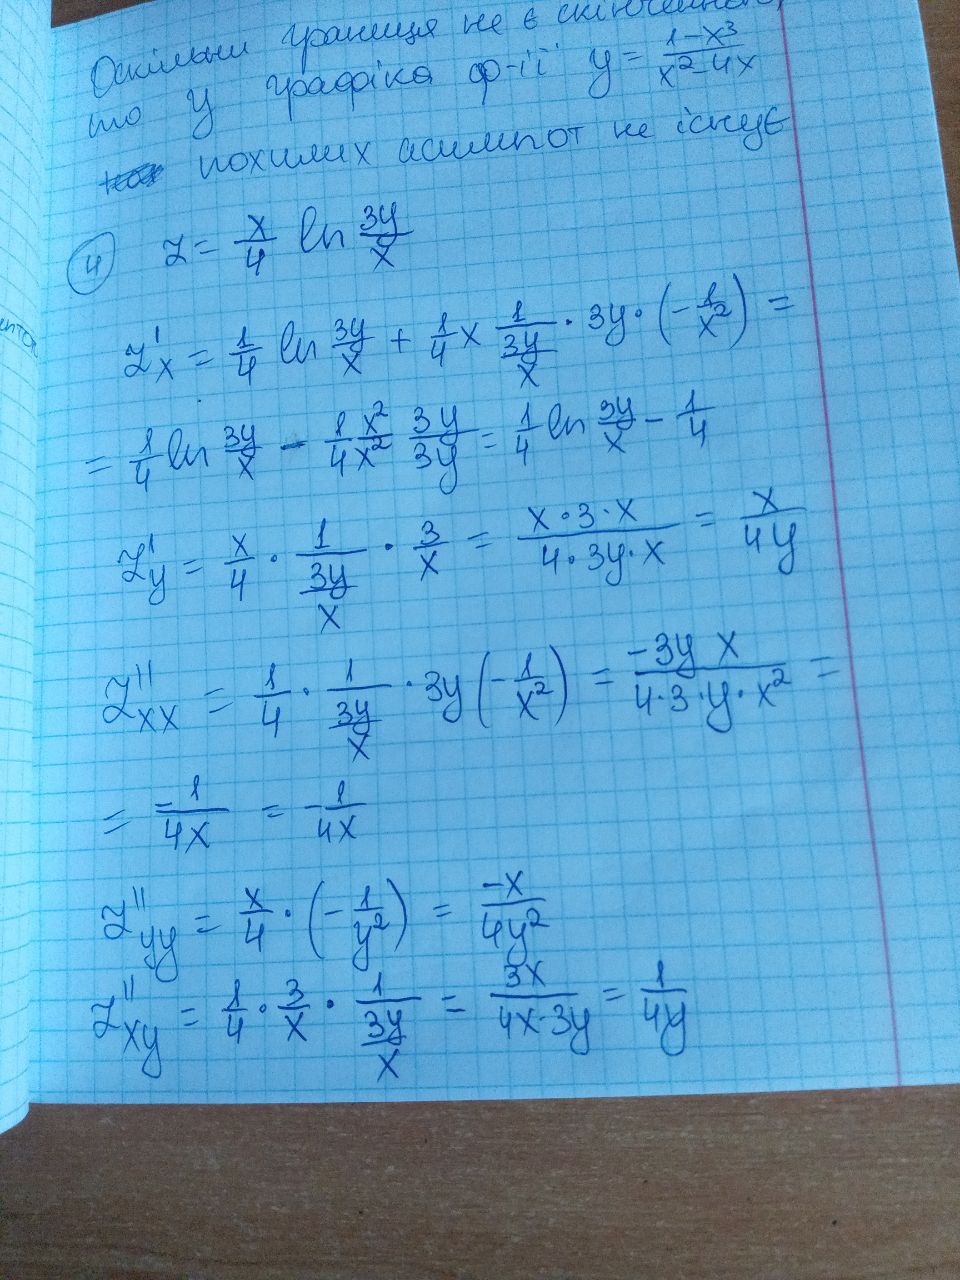 Оскільки границя не є скінченною,
то у графіка ф-ії y = \frac{1-x^3}{x^2-4x}
похилих асимпот не існує
4 z = \frac{x}{4} ln \frac{3y}{x}
z'_x = \frac{1}{4} ln \frac{3y}{x} + \frac{1}{4} x \frac{1}{\frac{3y}{x}} · 3y · (-\frac{1}{x^2}) =
= \frac{1}{4} ln \frac{3y}{x} - \frac{1}{4} \frac{x^2}{x^2} \frac{3y}{3y} = \frac{1}{4} ln \frac{3y}{x} - \frac{1}{4}
z'_y = \frac{x}{4} · \frac{1}{\frac{3y}{x}} · \frac{3}{x} = \frac{x·3·x}{4·3y·x} = \frac{x}{4y}
z''_{xx} = \frac{1}{4} · \frac{1}{\frac{3y}{x}} · 3y (-\frac{1}{x^2}) = \frac{-3y x}{4·3·y·x^2} =
= \frac{-1}{4x} = -\frac{1}{4x}
z''_{yy} = \frac{x}{4} · (-\frac{1}{y^2}) = \frac{-x}{4y^2}
z''_{xy} = \frac{1}{4} · \frac{3}{x} · \frac{1}{\frac{3y}{x}} = \frac{3x}{4x·3y} = \frac{1}{4y}